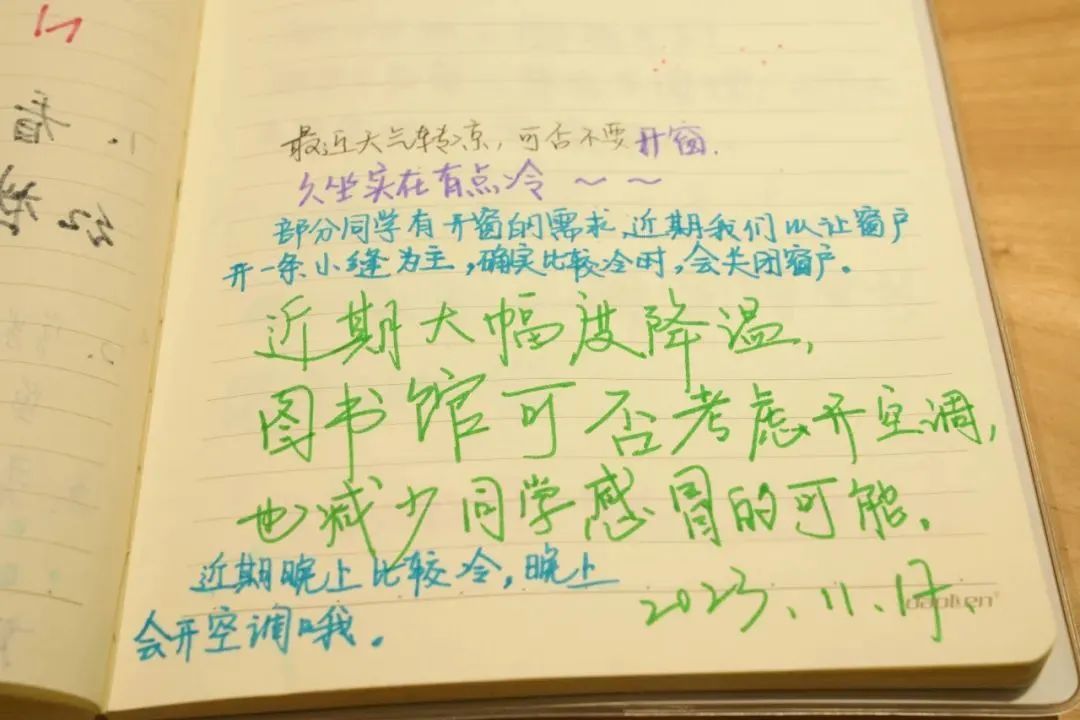 最近天气转凉，可否不要开窗.
久坐实在有点冷～～
部分同学有开窗的需求,近期我们以让窗户
开一条小缝为主,确实比较冷时,会关闭窗户。
近期大幅度降温,
图书馆可否考虑开空调,
也减少同学感冒的可能.
近期晚上比较冷,晚上
会开空调哦。
2023.11.17